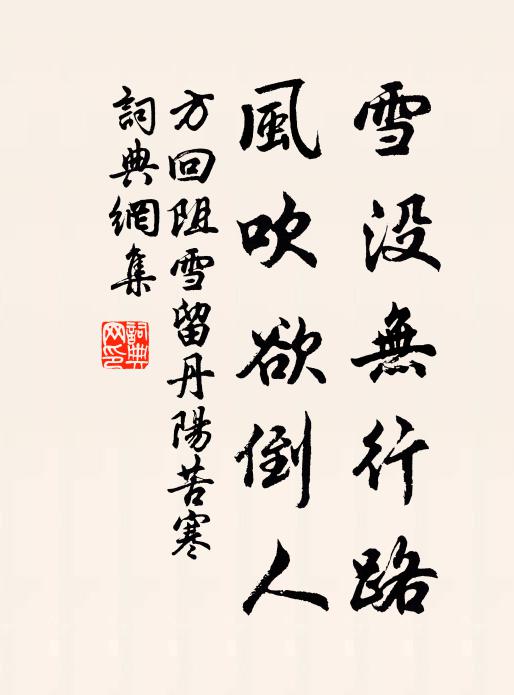 雪没無行路
風吹欲倒人
方回阻雪留丹陽苦寒
詞典網集
詞典网印